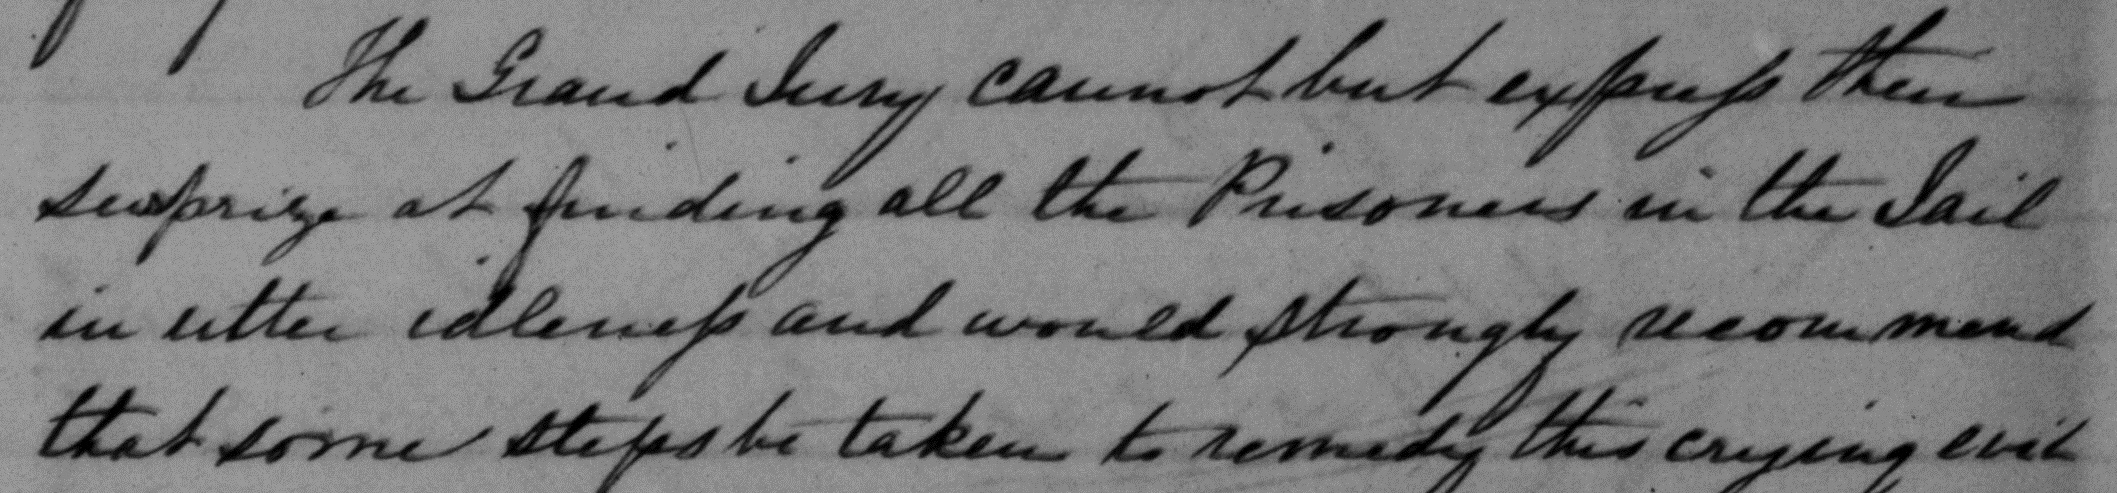 The Grand Jury cannot but express their
surprize at finding all the Prisoners in the Jail
in utter idleness and would strongly recommend
that some steps be taken to remedy this crying evil